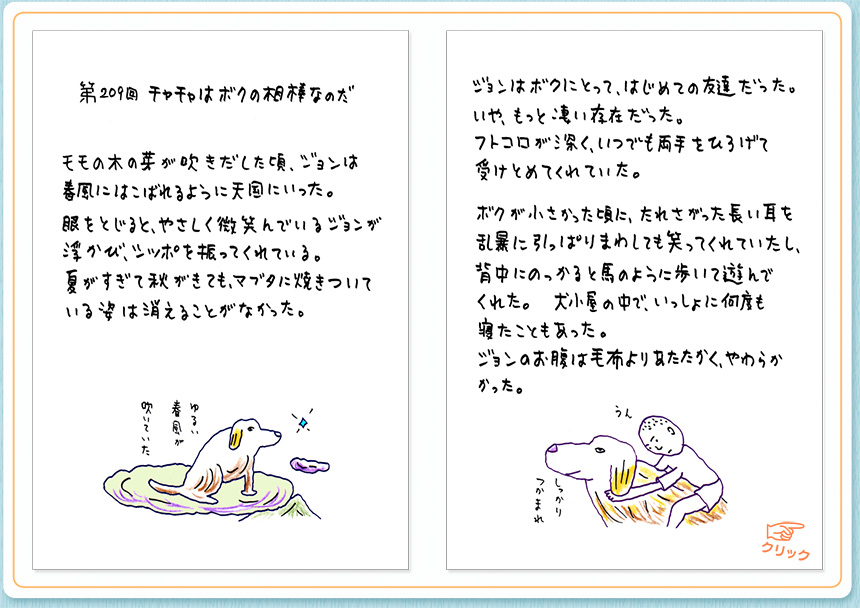 第209回 チャチャはボクの相棒なのだ
モモの木の芽が吹きだした頃、ジョンは
春風にはこばれるように天国にいった。
眼をとじると、やさしく微笑んでいるジョンが
浮かび、シッポを振ってくれている。
夏がすぎて秋がきても、マブタに焼きついて
いる姿は消えることがなかった。
ゆるい
春風が
吹いていた
ジョンはボクにとって、はじめての友達だった。
いや、もっと凄い存在だった。
フトコロが深く、いつでも両手をひろげて
受けとめてくれていた。
ボクが小さかった頃に、たれさがった長い耳を
乱暴に引っぱりまわしても笑ってくれていたし、
背中にのっかると馬のように歩いて遊んで
くれた。 犬小屋の中で、いっしょに何度も
寝たこともあった。
ジョンのお腹は毛布よりあたたかく、やわらか
かった。
うん
しっかり
つかまれ
クリック